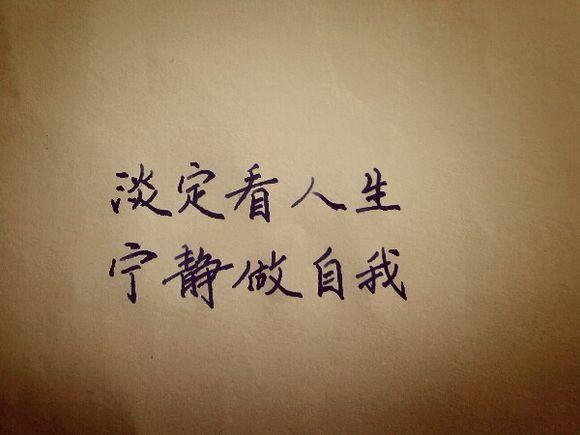 淡定看人生
宁静做自我